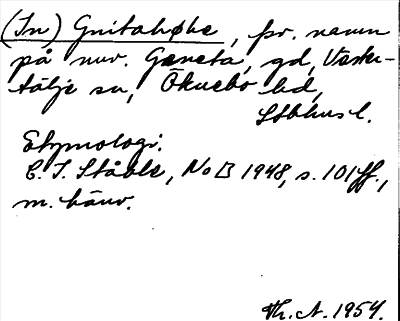 (In) Gnitahøke, fsv. namn
på nuv. Gæneta, gd, Väster-
tälje sn, Öknebo hd,
Sthlms l.
Etymologi.
C. I. Ståhle, NoB 1948, s. 101 ff.,
m. hänv.
Th. A. 1954.